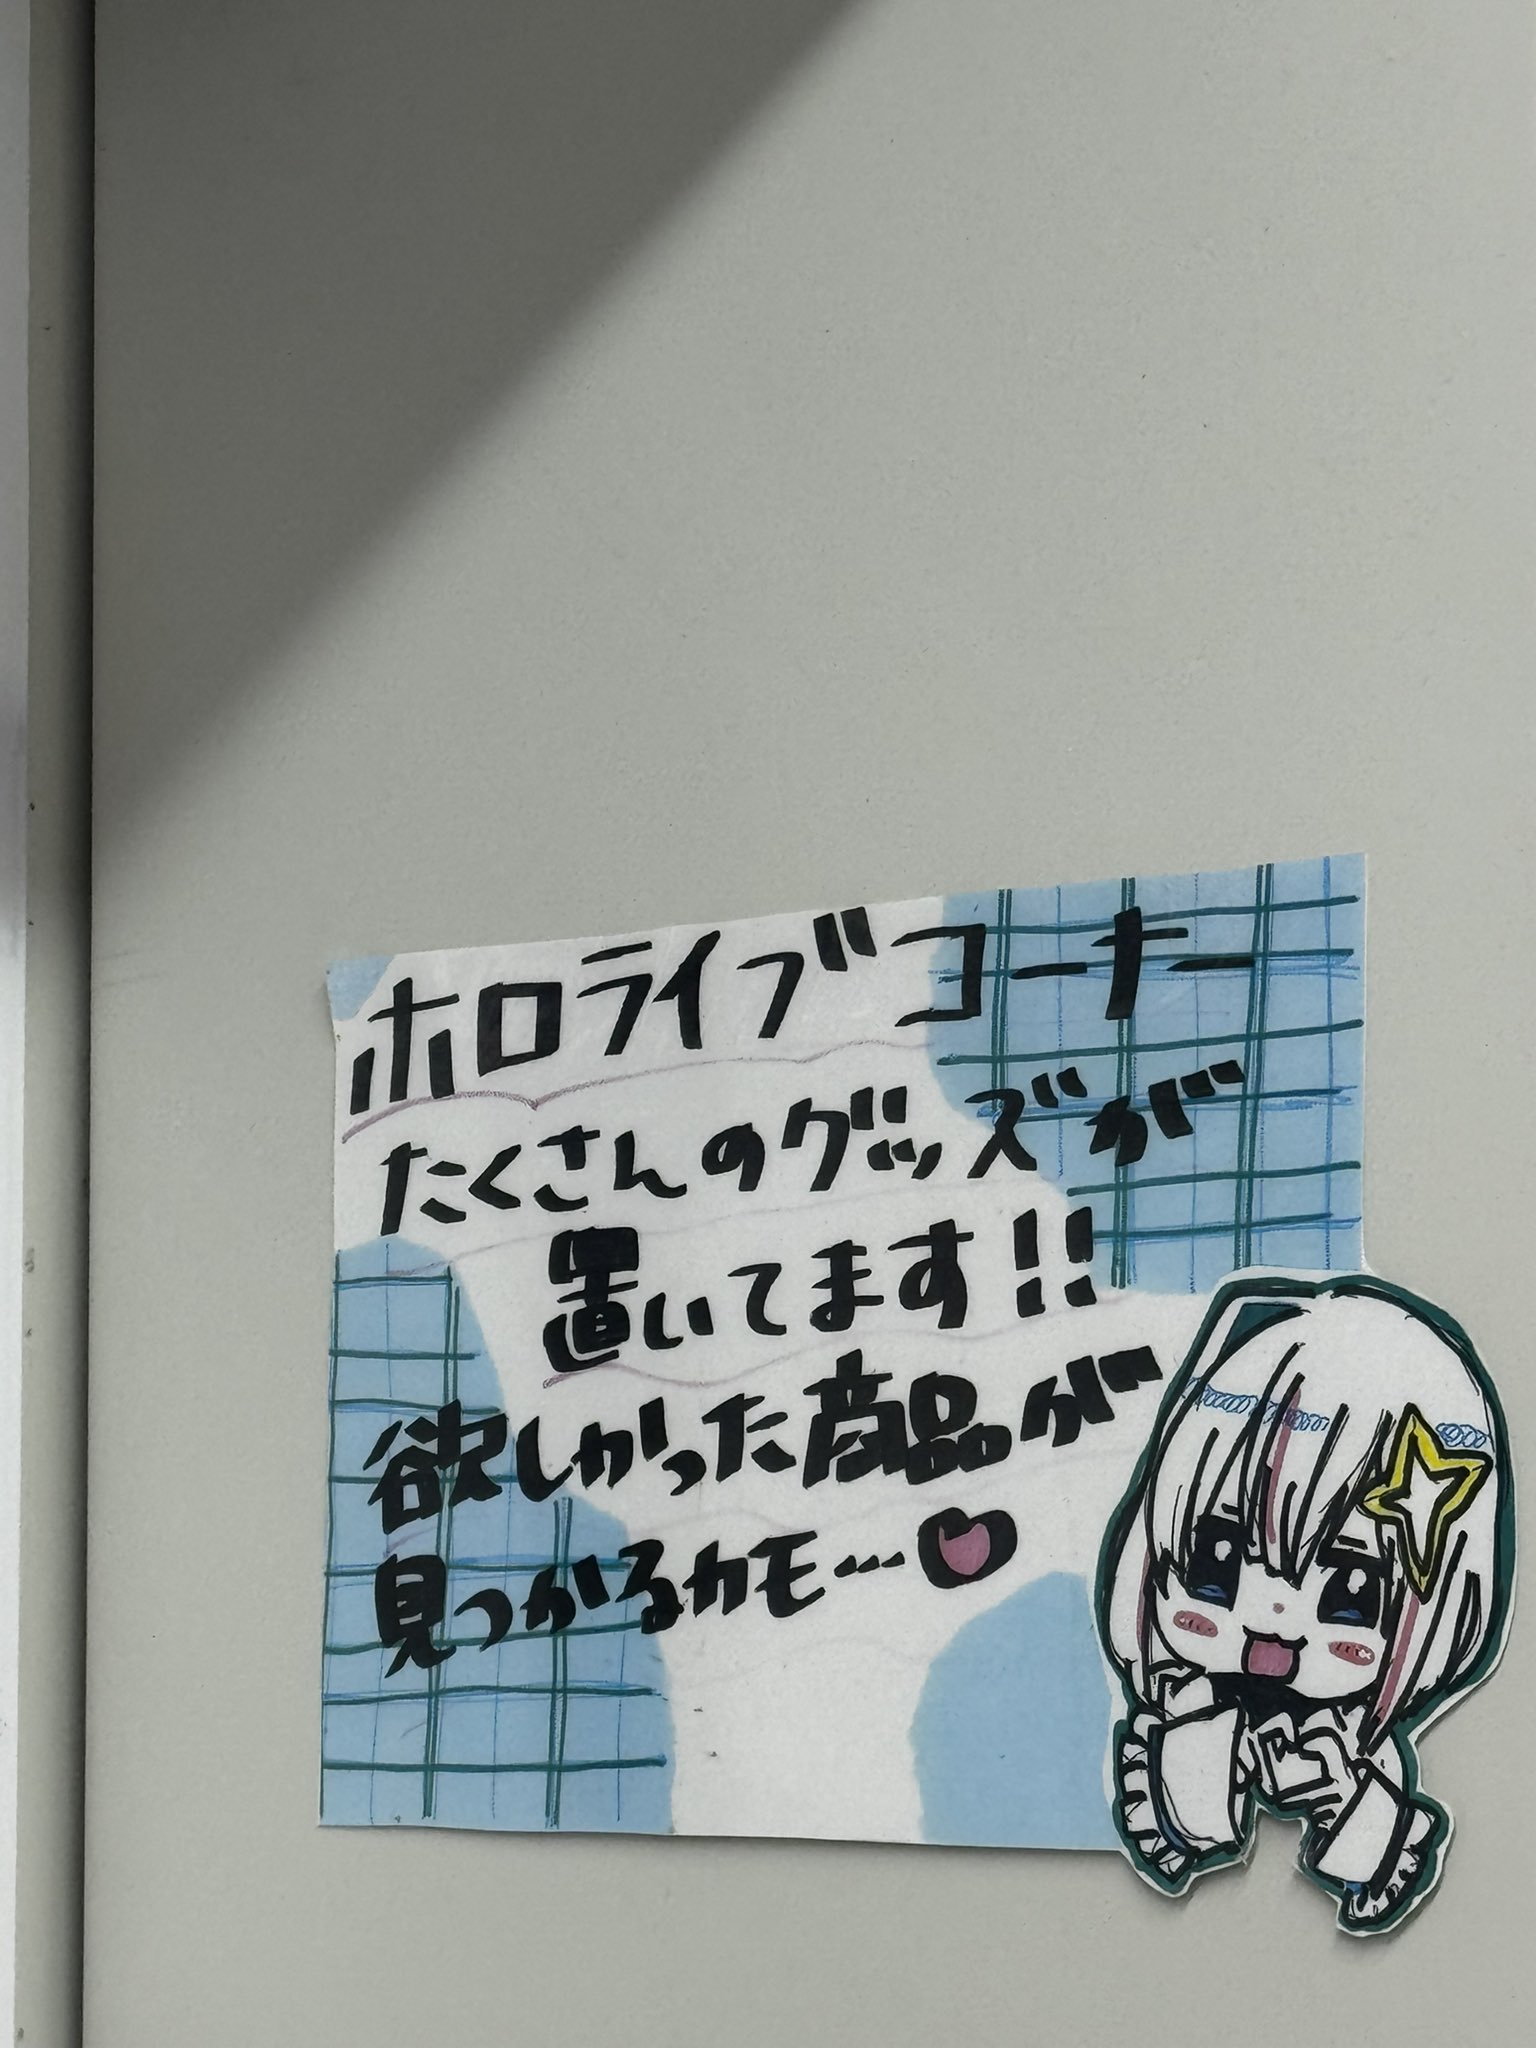 ホロライブコーナー
たくさんのグッズが
置いてます!!
欲しかった商品が
見つかるカモ…